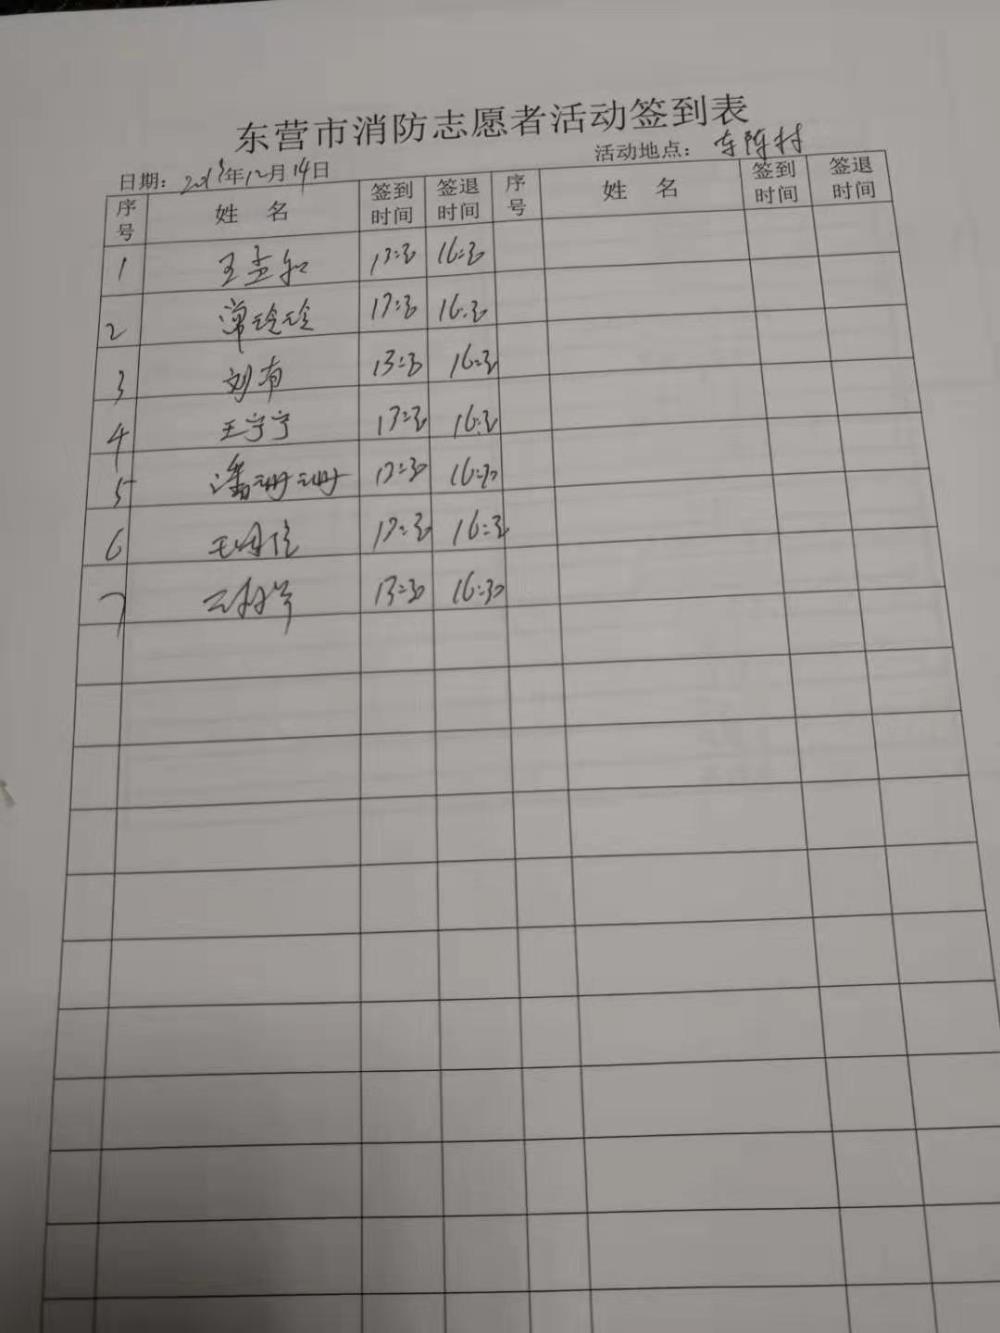 东营市消防志愿者活动签到表
日期：年12月14日 活动地点：东陈村
序号 姓 名 签到时间 签退时间 序号 姓 名 签到时间 签退时间
1 王孟和 13:30 16:30
2 常玲玲 13:30 16:30
3 刘有 13:30 16:30
4 王宁宁 13:30 16:30
5 潘珊珊 13:30 16:30
6 13:30 16:30
7 13:30 16:30